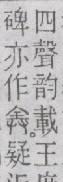 四聲韵載王
碑亦作𥝢。疑